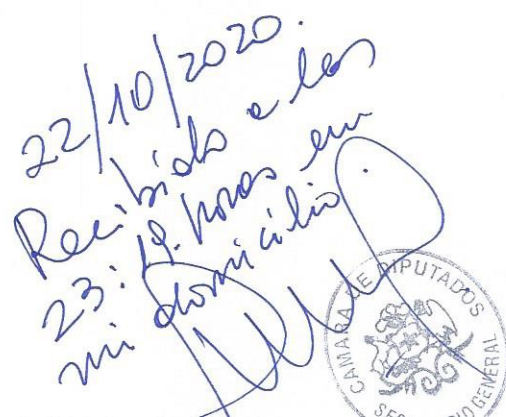 22/10/2020.
Recibido a las
23:19. horas en
mi domicilio.
CAMARA DE DIPUTADOS
SECRETARIO GENERAL